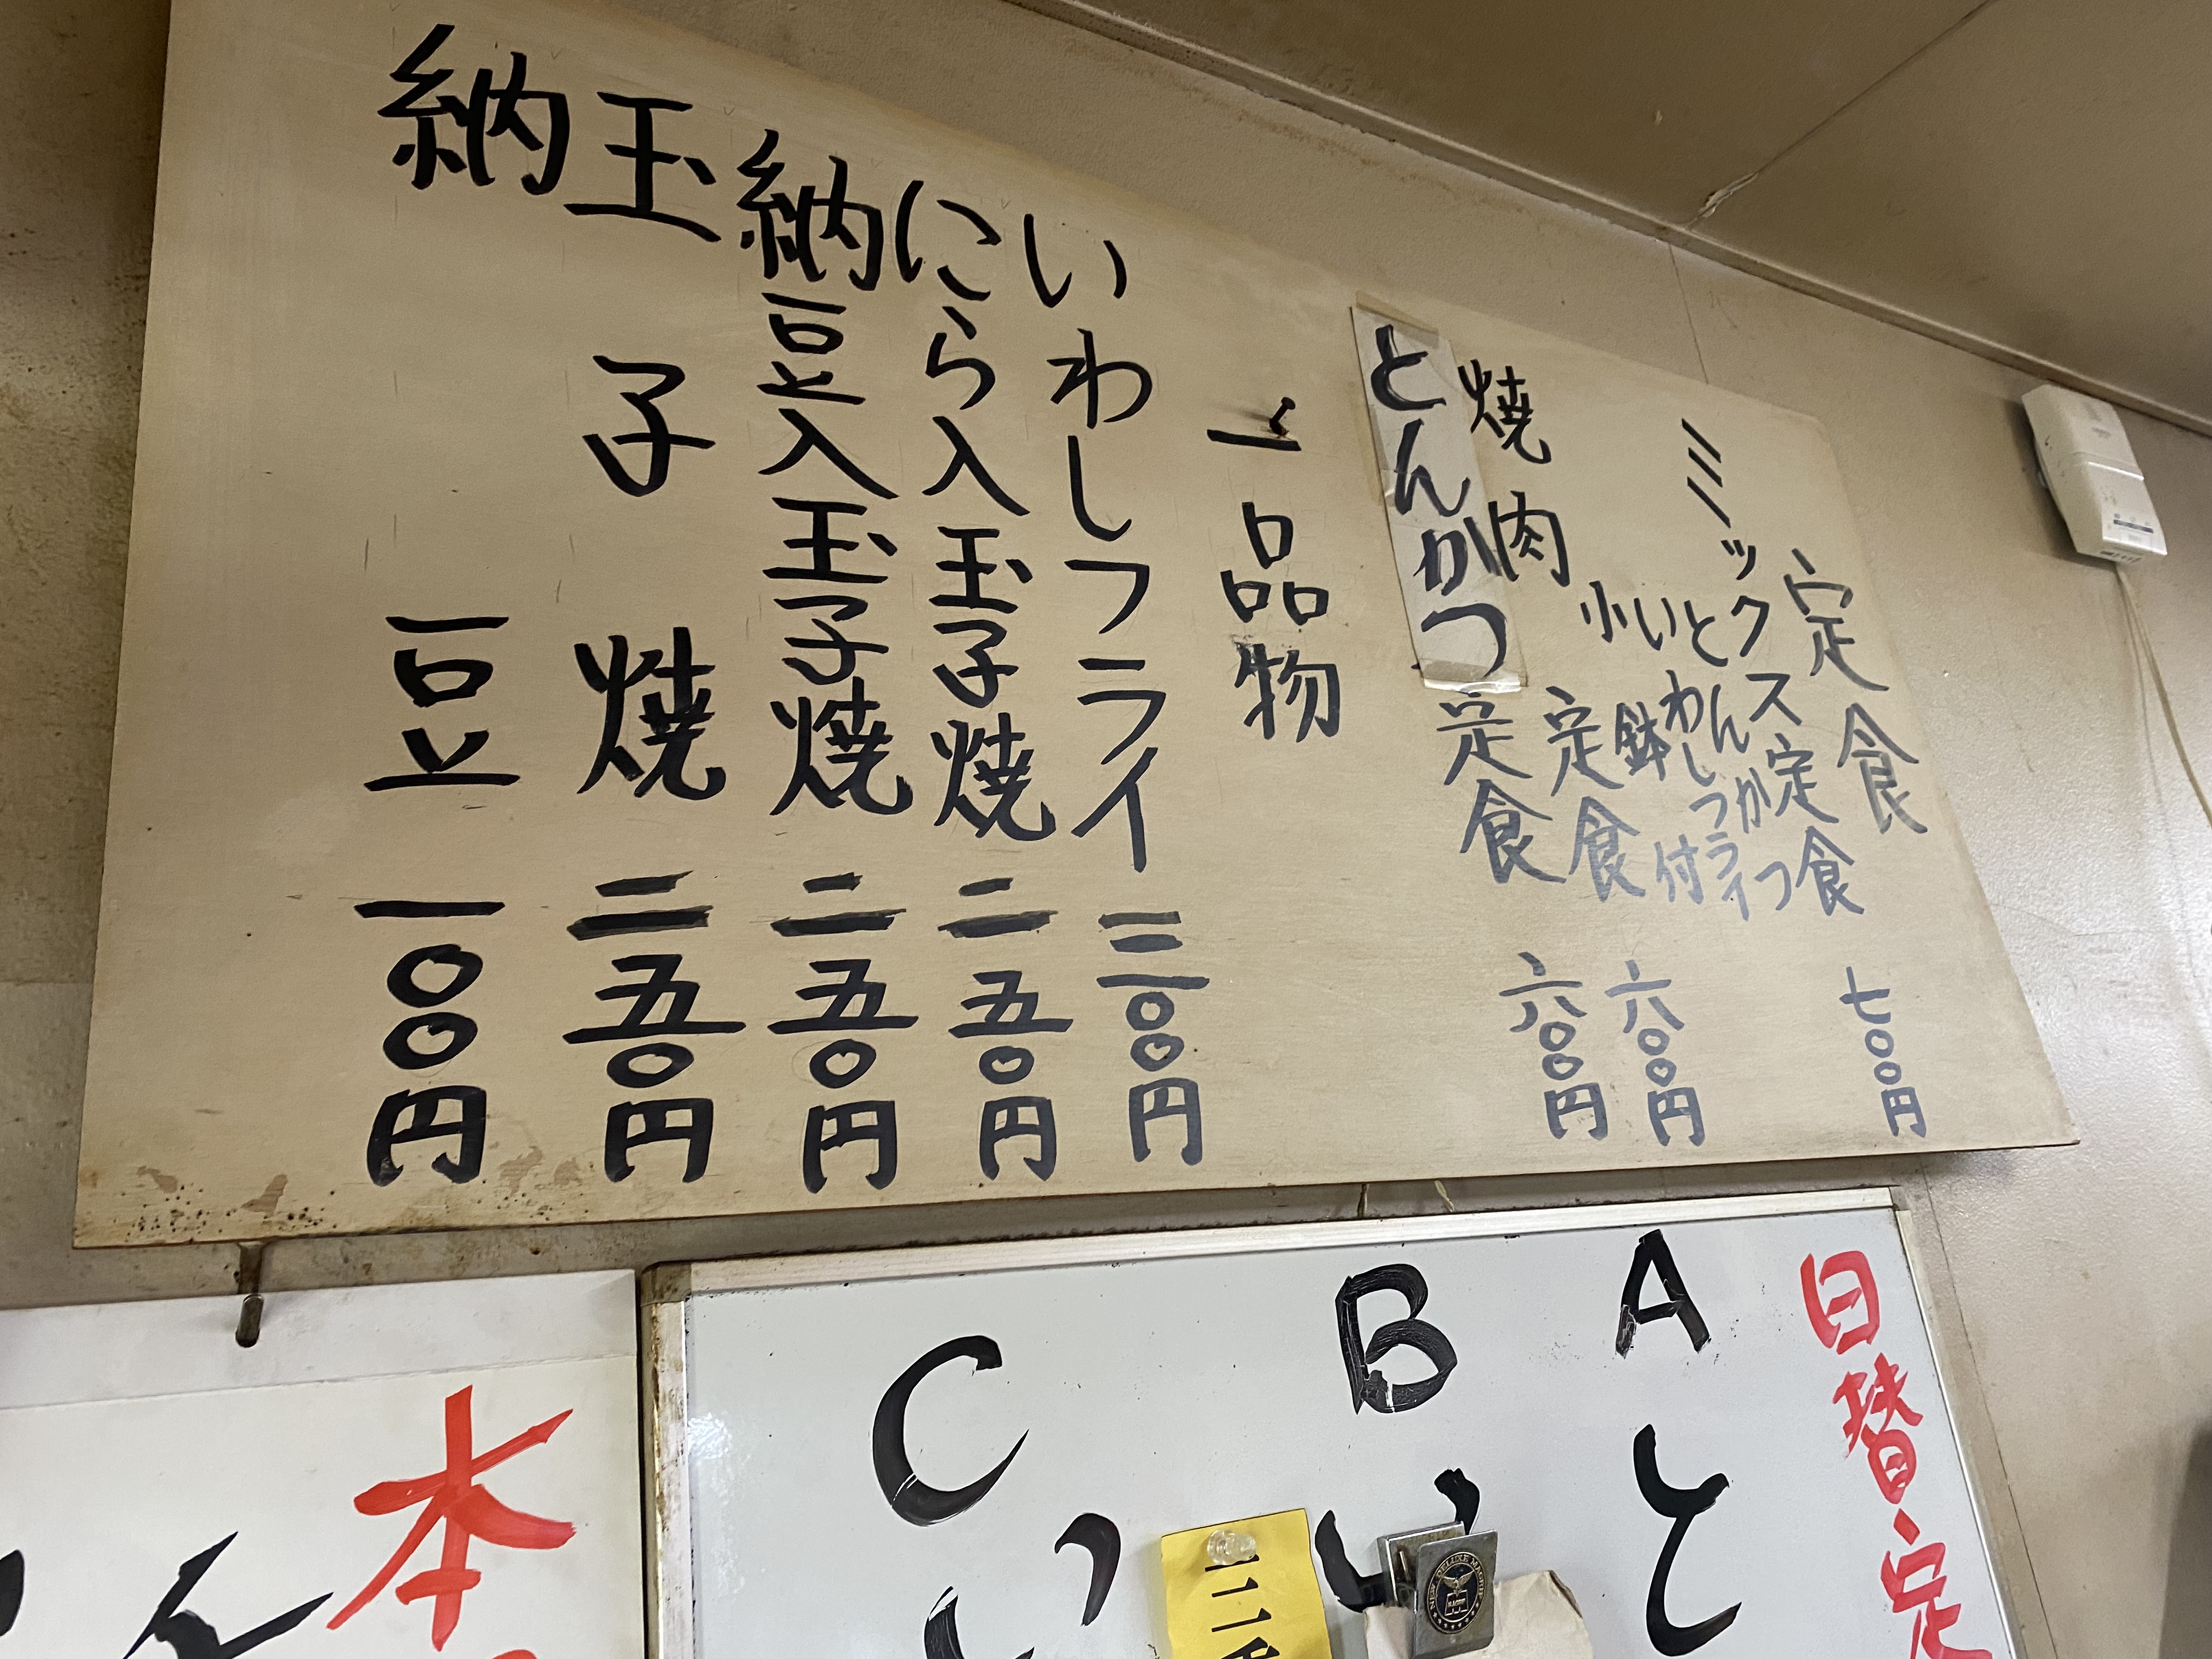 定食
ミックス定食 七〇〇円
とんかつ
いわしフライ
小鉢付
焼肉定食 六〇〇円
とんかつ定食 六〇〇円
一品物
いわしフライ 三〇〇円
にら入玉子焼 二五〇円
納豆入玉子焼 二五〇円
玉子焼 二五〇円
納豆 一〇〇円
日替定
A と
B い
C
本